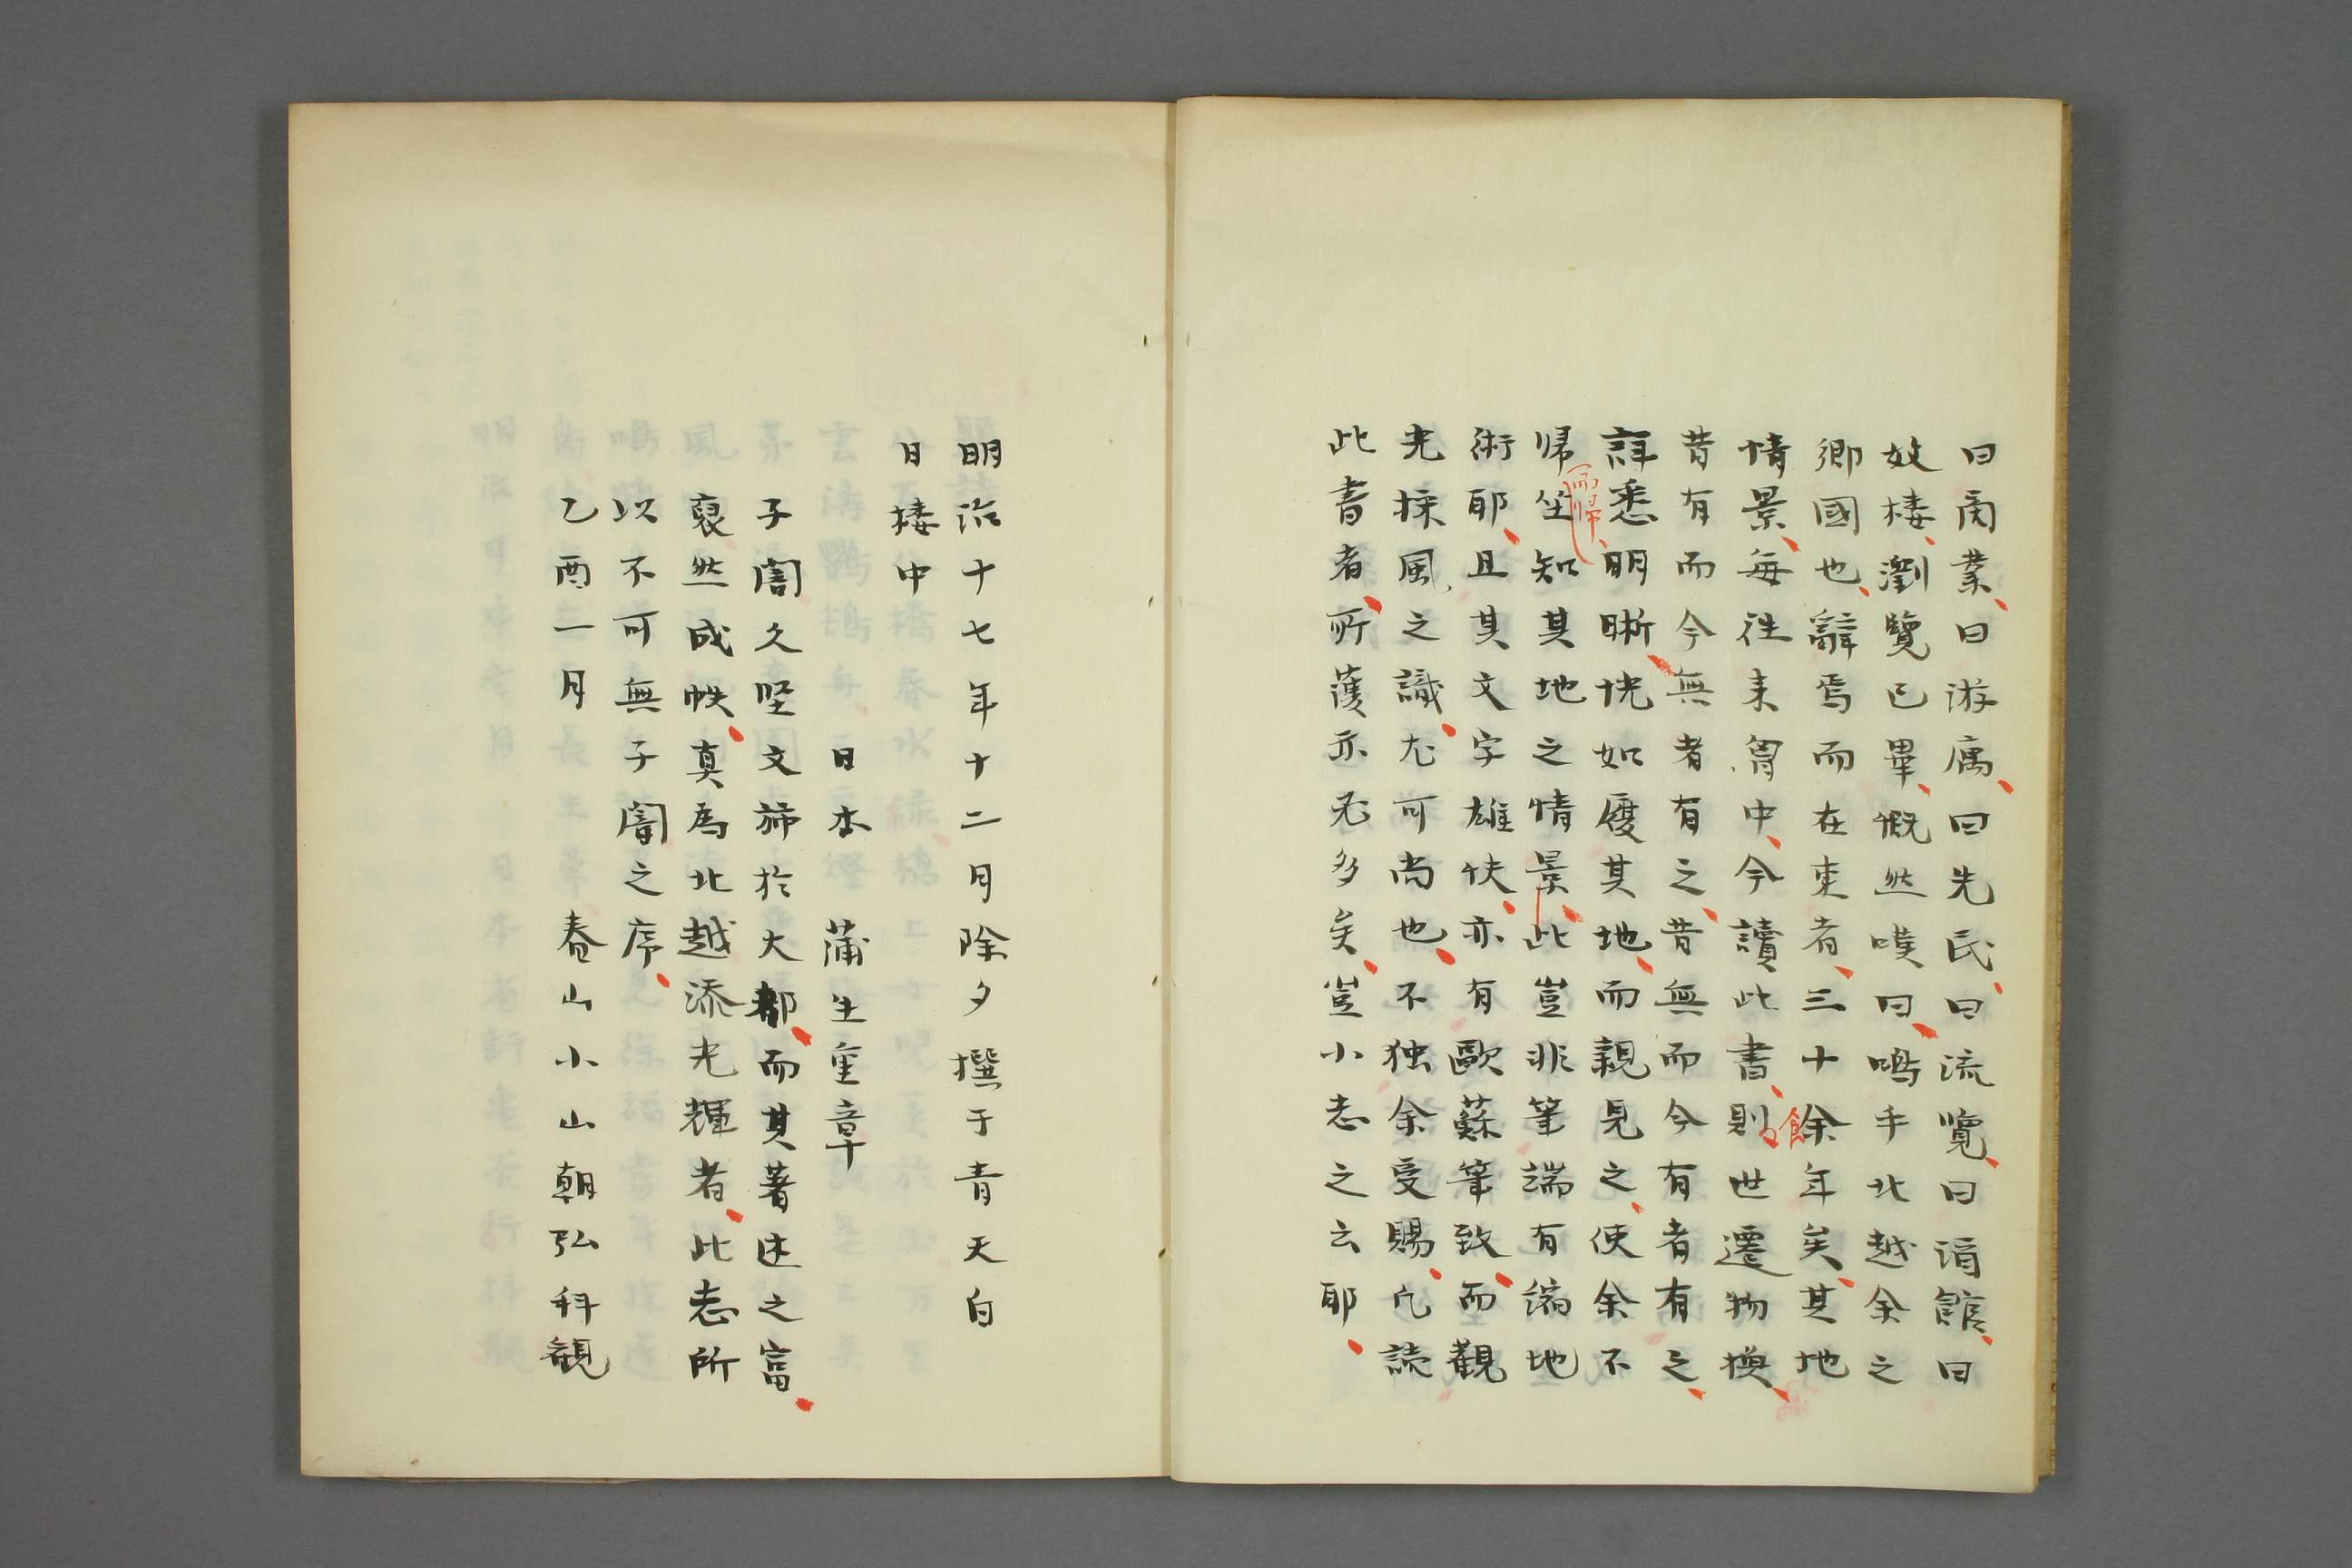 曰商業曰游寓曰先民曰流覽曰酒館曰
妓棲瀏覽已畢慨然嘆曰嗚乎北越余之
鄉國也辭焉而在東者三十余年矣其地
餘
情景每往来胷中今讀此書則世遷物換
昔有而今無者有之昔無而今有者有之
詳悉明晰恍如履其地而親見之使余不
而歸
帰坐知其地之情景此豈非筆端有縮地
術耶且其文字雄快亦有歐蘇筆致而觀
光採風之識尤可尚也不独余受賜凡読
此書者所獲亦不多矣豈小志之云耶
明治十七年十二月除夕撰于青天白
日楼中
日本 蒲生重章
子闇久堅文旆於大都而其著述之富
裒然成帙真為北越添光輝者此志所
以不可無子闇之序
乙酉一月 春山小山朝弘科觀